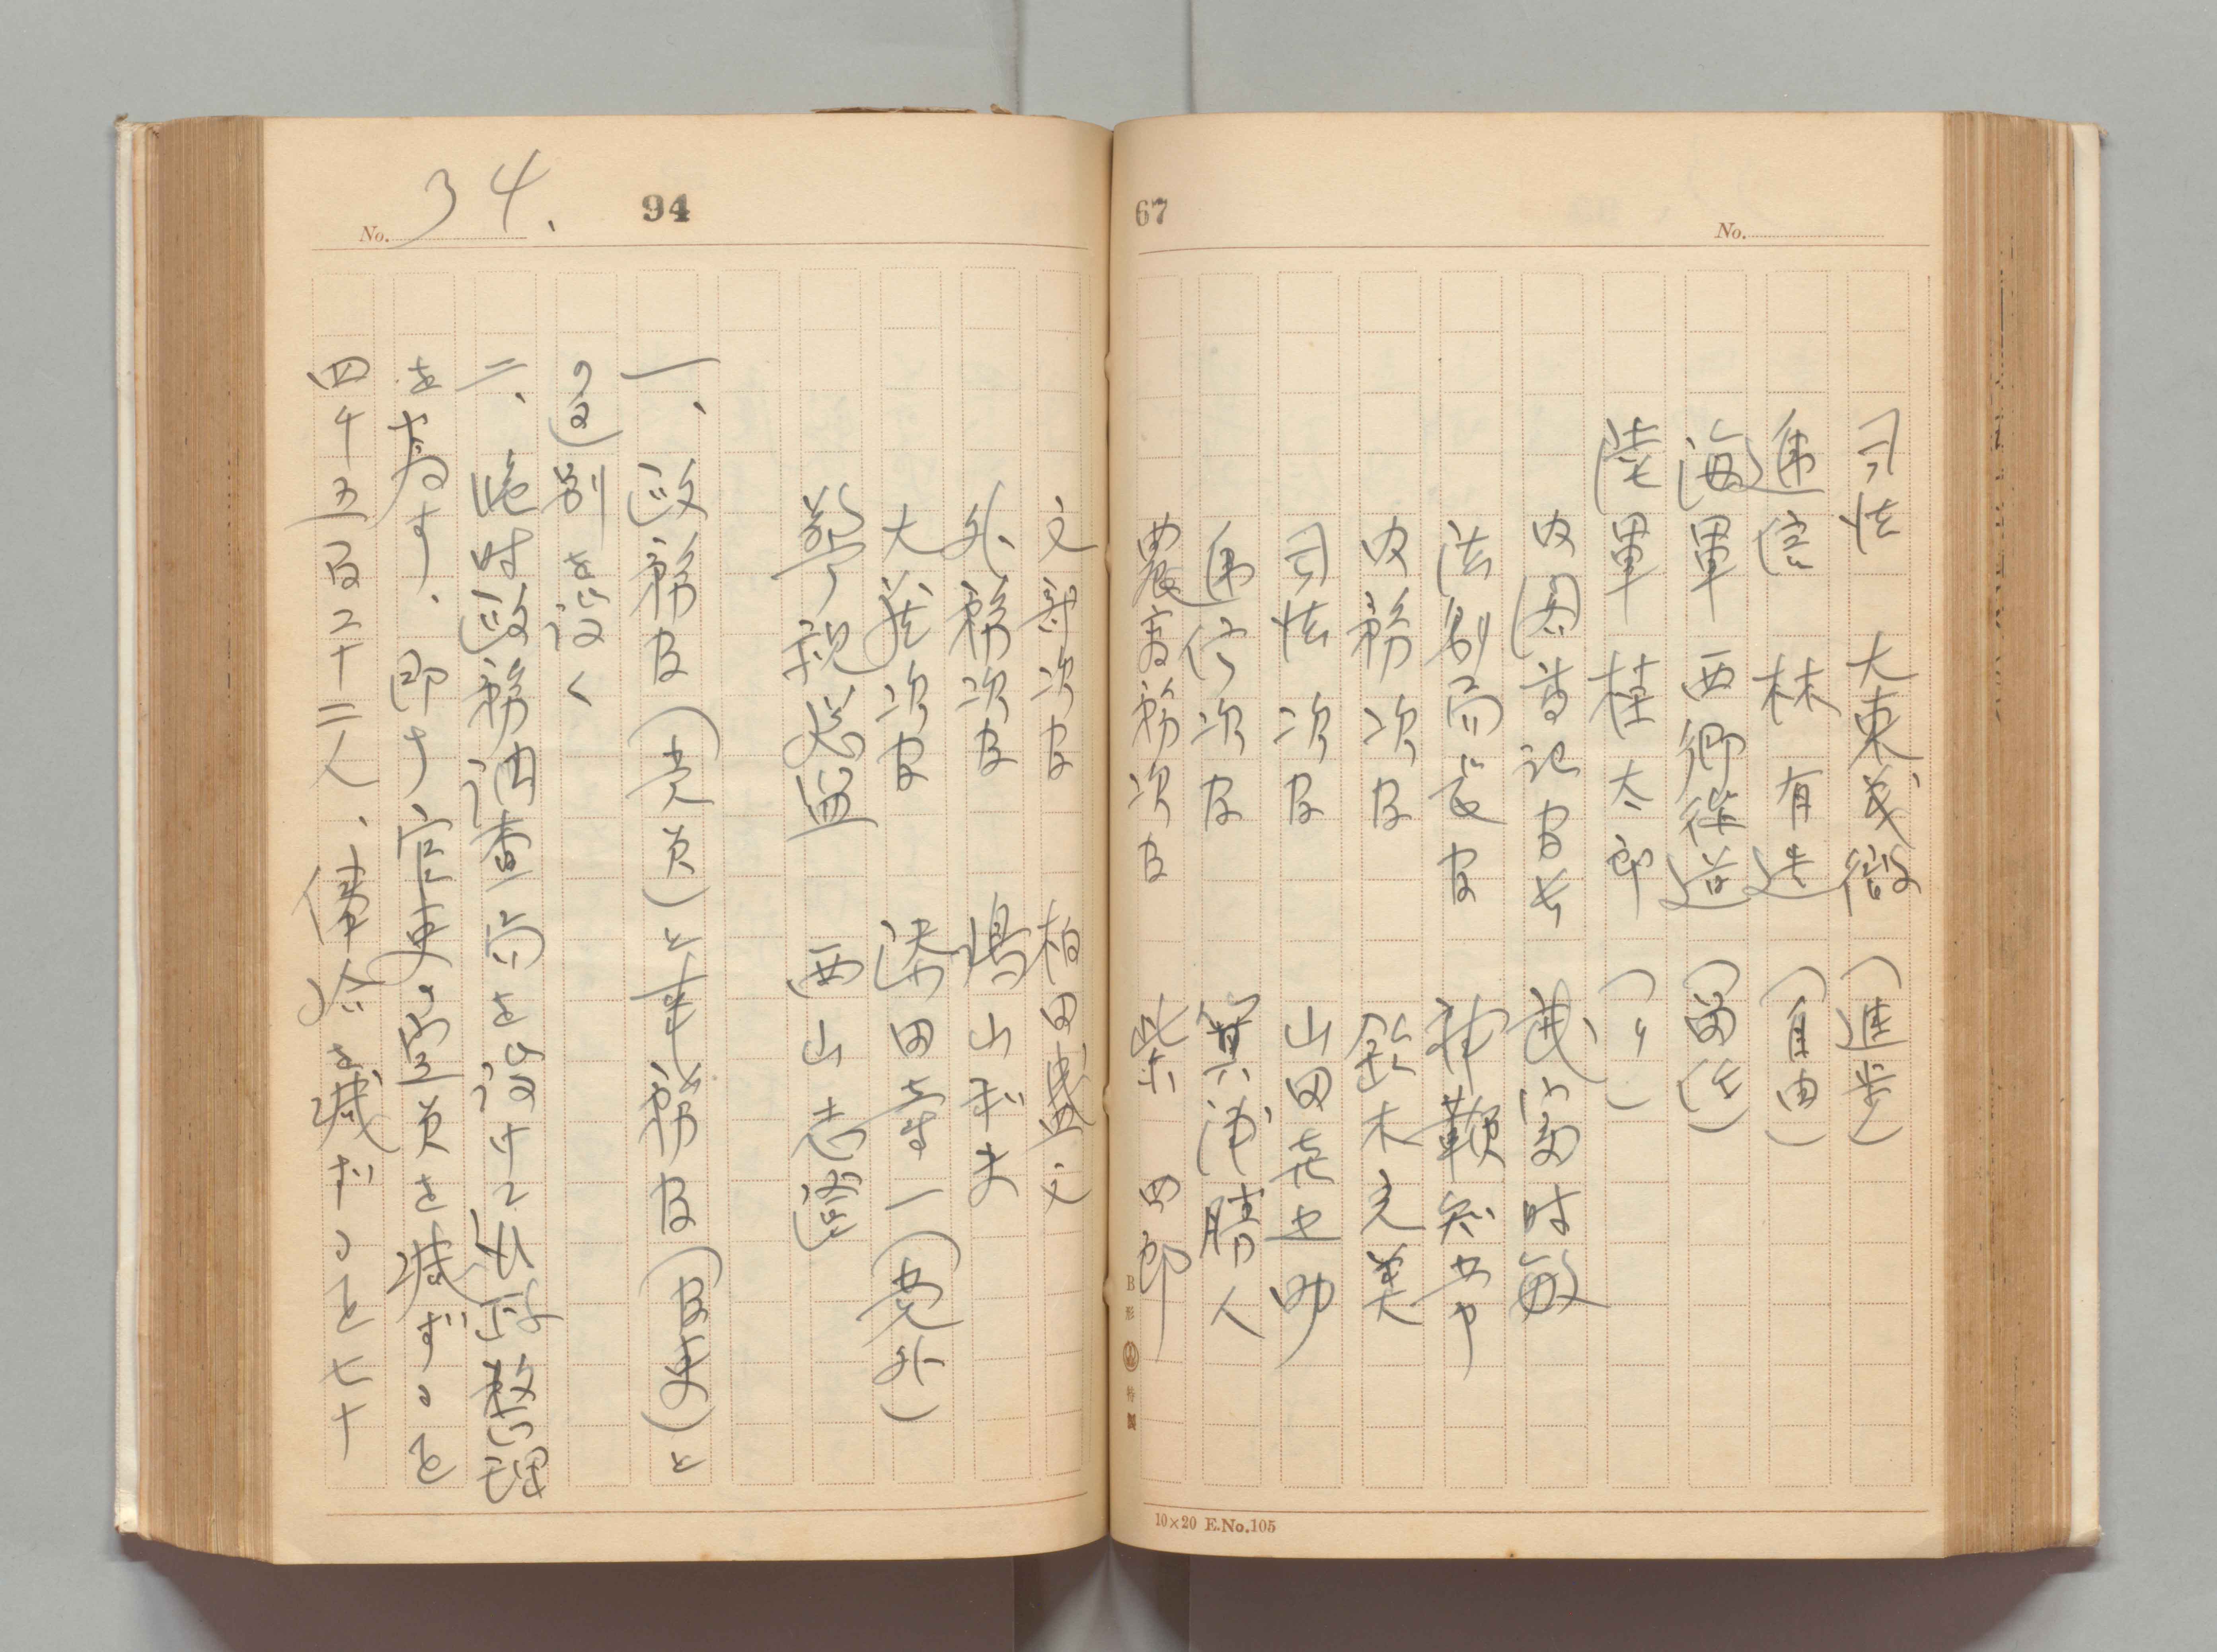 67
No.
司法　大東義徹（進歩）
逓信　林有造（自由）
海軍　西郷従道（留任）
陸軍　桂太郎（〃）
内閣書記官長　武富時敏
法制局長官　神鞭知常
内務次官　鈴木充美
司法次官　山田喜之助
逓信次官　箕浦勝人
農商務次官　柴四郎
B形 特製
10×20 E.No.105
94
No. 34.
文部次官　柏田盛文
外務次官　鳩山和夫
大蔵次官　添田寿一（党外）
警視総監　西山志澄
一、政務官（党員）と事務官（官吏）と
の区別を設く
二、臨時政務調査局を設けて行政整理
を為す、即ち官吏の定員を減ずること
四千五百二十二人、俸給を減ずること七十